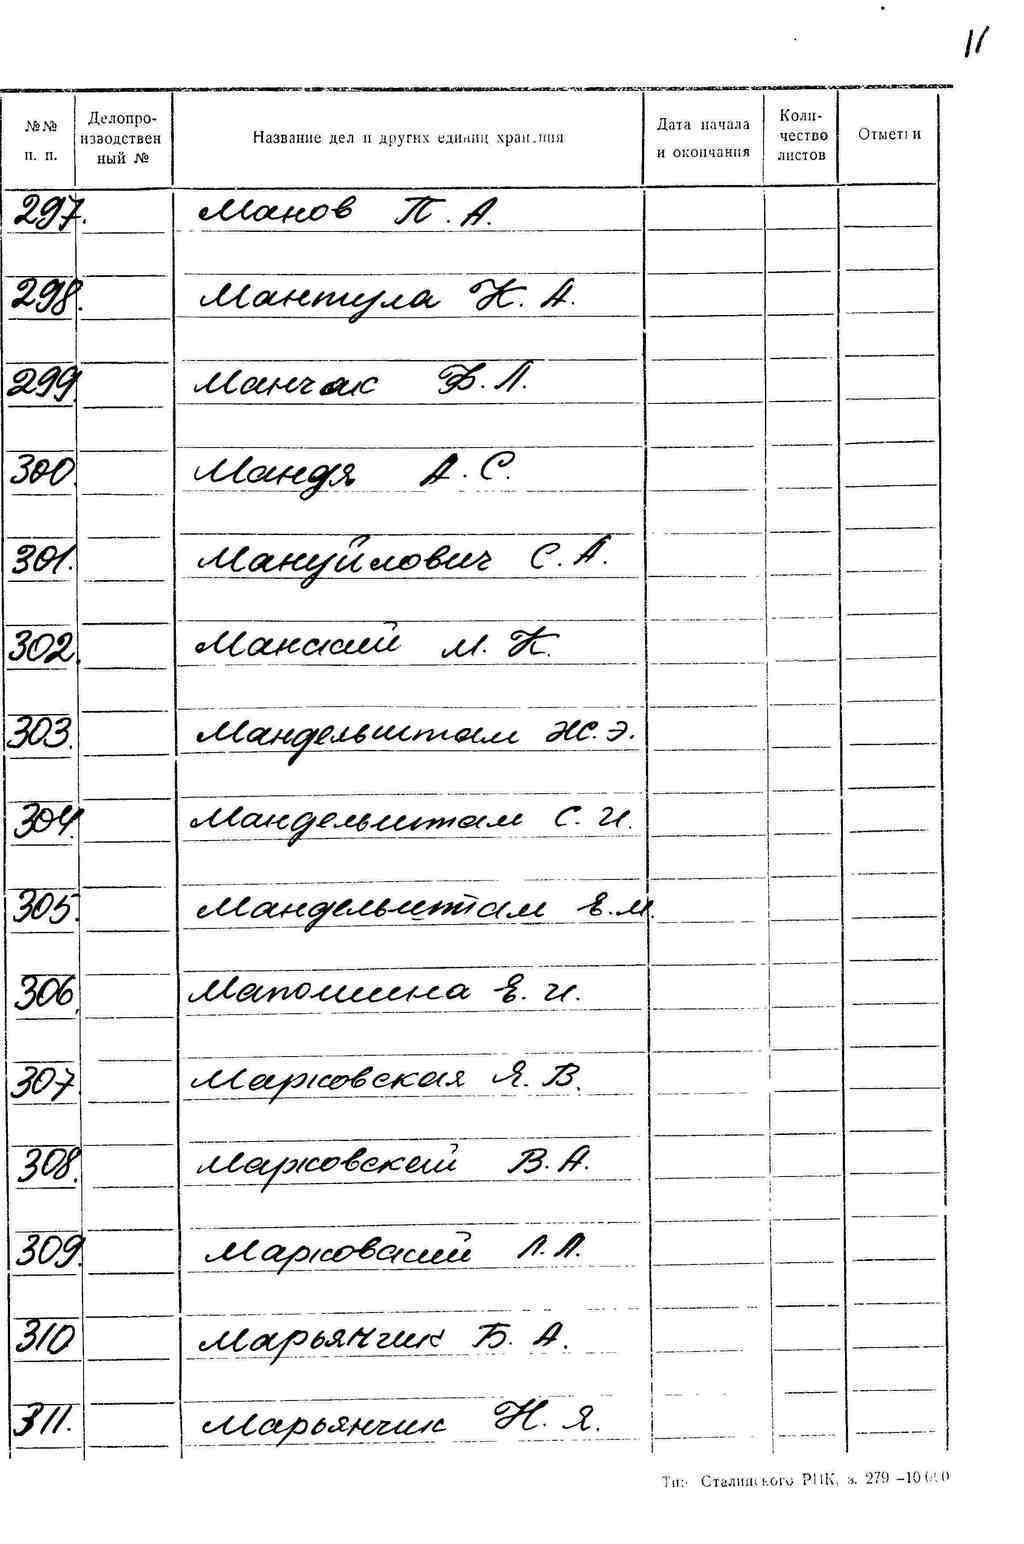 11
№№ п. п.
Делопро-
изводствен
ный №
Название дел и других единиц хранения
Дата начала
и окончания
Коли-
чество
листов
Отметки
297. Манов П. А.
298. Мантула К. А.
299. Манчак Ф. Л.
300. Мандя А. С.
301. Мануйлович С. А.
302. Манский М. К.
303. Мандельштам Ж. Э.
304. Мандельштам С. И.
305. Мандельштам Е. М.
306. Мапошина Е. И.
307. Марковская Я. В.
308. Марковский В. А.
309. Марковский Л. Л.
310 Марьянчик Б. А.
311. Марьянчик Н. Я.
Тип. Сталинского РПК, з. 279